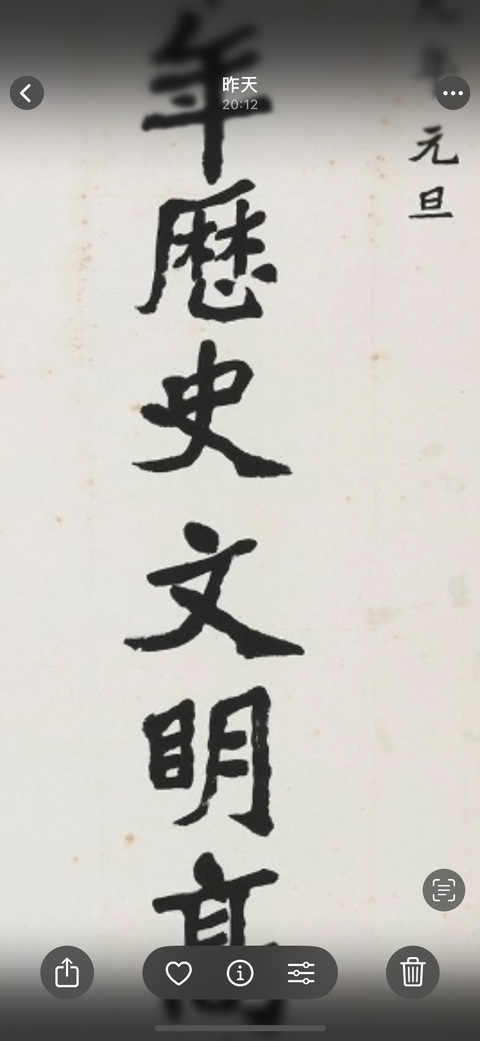 昨天
20:12
年元旦
年歷史文明高